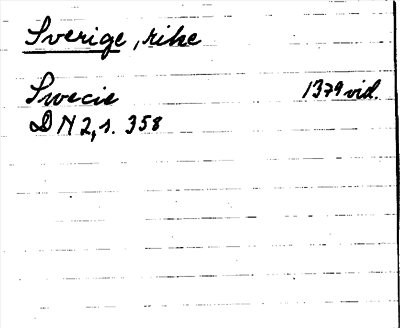 Sverige, rike
Swecie 1379 vid.
DN 2, s. 358